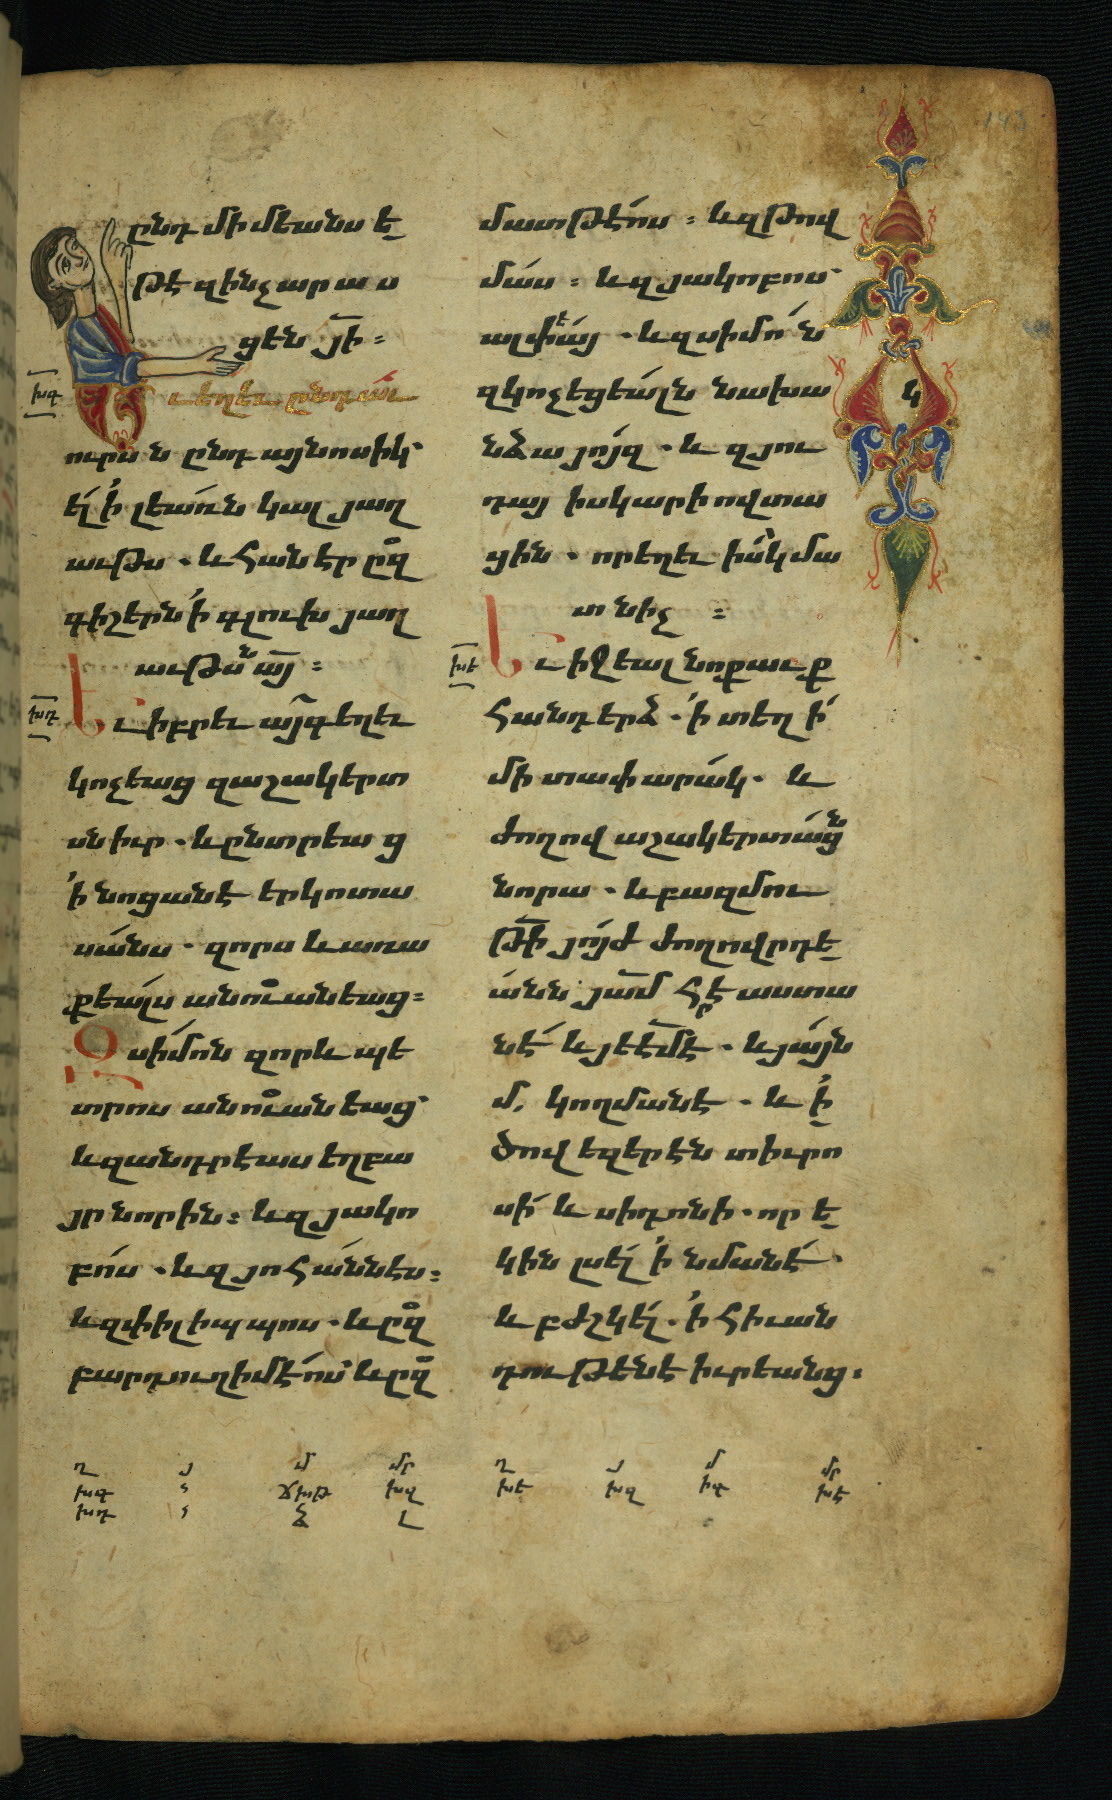 ընդ միմեանս ե
թէ զինչ արաս
ցեն յ̅ի ։
խգ
Եւ եղեւ ընդ աւ
ուրսն ընդ այնոսիկ՝
ել՛ ՛ի լեառն կալ յաղ
աւթս . և հաներ ըզ
գիշերն ՛ի գլուխ յաղ
աւթսն ա̅յ ։
խդ
Եւ իբրեւ այգ եղեւ
կոչեաց զաշակերտ
սն իւր . և ընտրեաց
՛ի նոցանէ երկոտա
սանս . զորս և առա
քեալս անուանեաց ։
Զսիմոն զոր և պե
տրոս անուանեաց՝
և զանդրէաս եղբա
յր նորին ։ և զյակո
բոս . և զյոհաննէս ։
և զփիլիպպոս . և ըզ
բարդուղիմէոս՝ և ըզ
մատթէոս ։ և զթով
մաս ։ և զյակոբոս՝
ալփեայ . և զսիմոն
զկոչեցեալն նախա
նձայոյզ . և զյու
դայ իսկարիովտա
ցին . որ եղեւ իսկ մա
տնիչ ։
խե
Եւ իջեալ նոքաւք
հանդերձ . ՛ի տեղի
մի տափարակ . և
ժողով աշակերտացն
նորա . և բազմու
թի̅ յոյժ ժողովրդե
անն յա̅մ հրէաստա
նէ և յեէ̅մէ . և յայն
մ, կողմանէ . և ՛ի
ծովեզերէն տիւրո
սի և սիդոնի . որ ե
կին լսել ՛ի նմանէ .
և բժշկել . ՛ի հիւան
դութենէ իւրեանց ։
կ
143
ղ յ մ մր
խգ ՝ ճխթ խզ
խդ ՝ ձ լ
ղ յ մ մր
խե խզ իգ խե